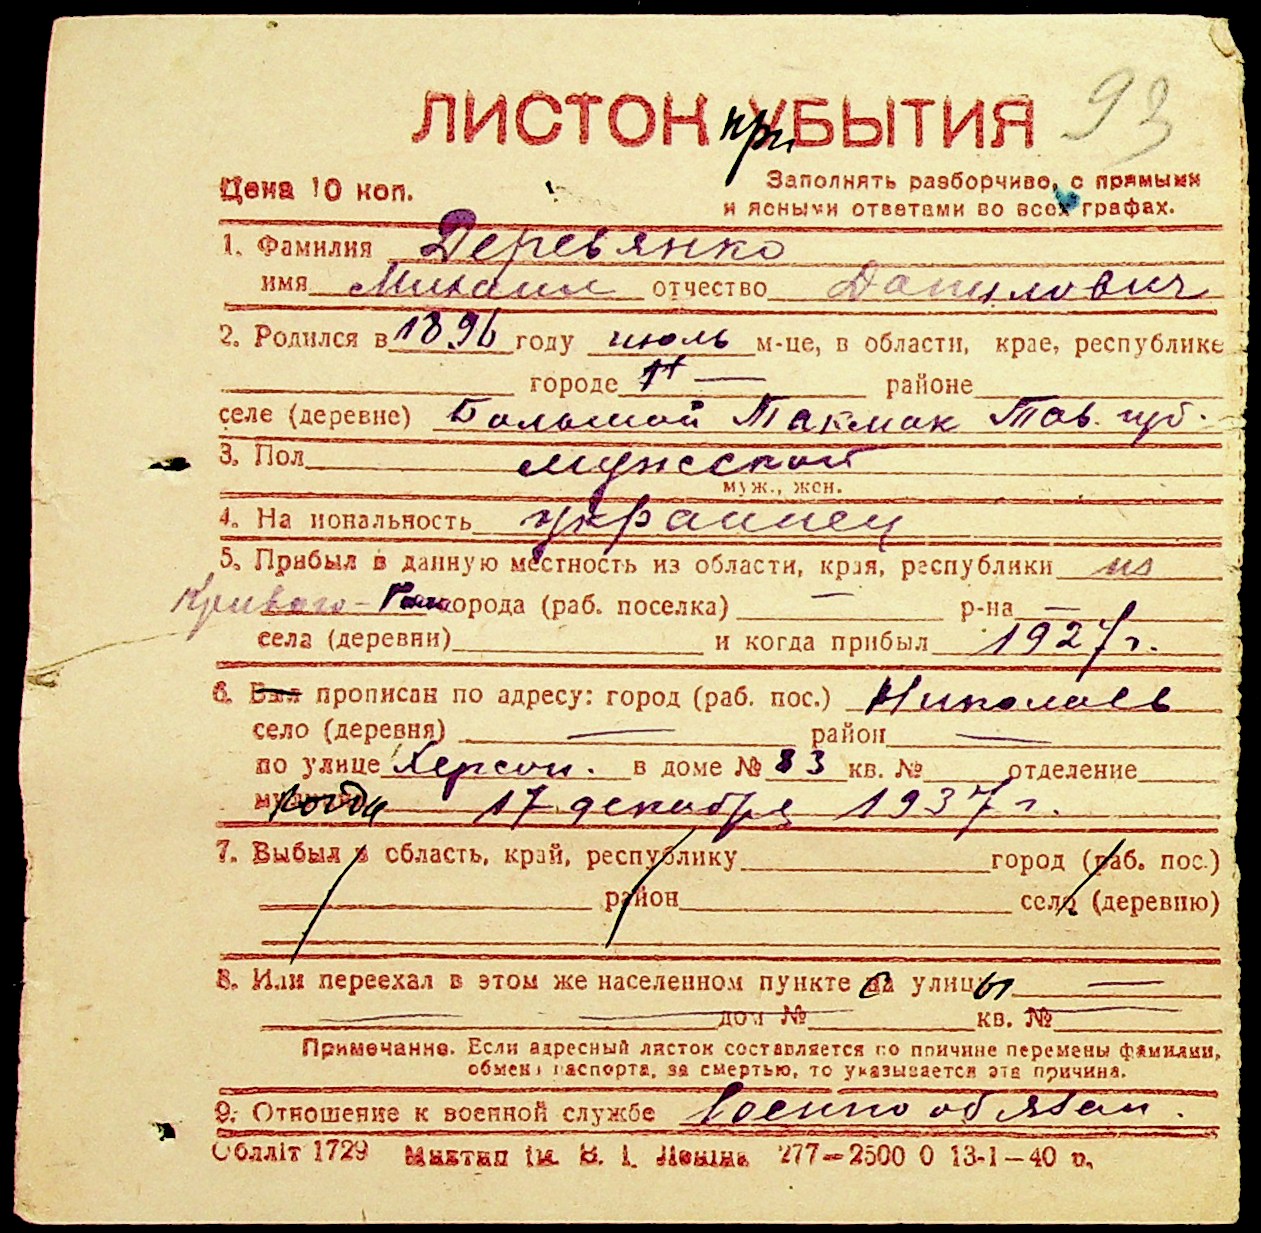 ЛИСТОК при УБЫТИЯ 93
Цена 10 коп.
Заполнять разборчиво, с прямыми
и ясными ответами во всех графах.
1. Фамилия Деревянко
имя Михаил отчество Данилович
2. Родился в 1896 году июль м-це, в области, крае, республике
городе — районе
селе (деревне) Большой Такмак Тав. губ.
3. Пол мужской
муж., жен.
4. На иональность украинец
5. Прибыл в данную местность из области, края, республики из
Кривого- Рога города (раб. поселка) — р-на —
села (деревни) и когда прибыл 1927 г.
6. Был прописан по адресу: город (раб. пос.) Николаев
село (деревня) — район —
по улице Херсон. в доме № 83 кв. № отделение
когда 17 декабря 1937 г.
7. Выбыл в область, край, республику город (раб. пос.)
район село (деревню)
8. Или переехал в этом же населенном пункте с улицы —
— — дом № кв. № —
Примечание. Если адресный листок составляется по причине перемены фамилии,
обмена паспорта, за смертью, то указывается эта причина.
9. Отношение к военной службе Военнообязан.
Облліт 1729 Миктип ім. В. І. Леніна 277—2500 0 13-1—40 р.